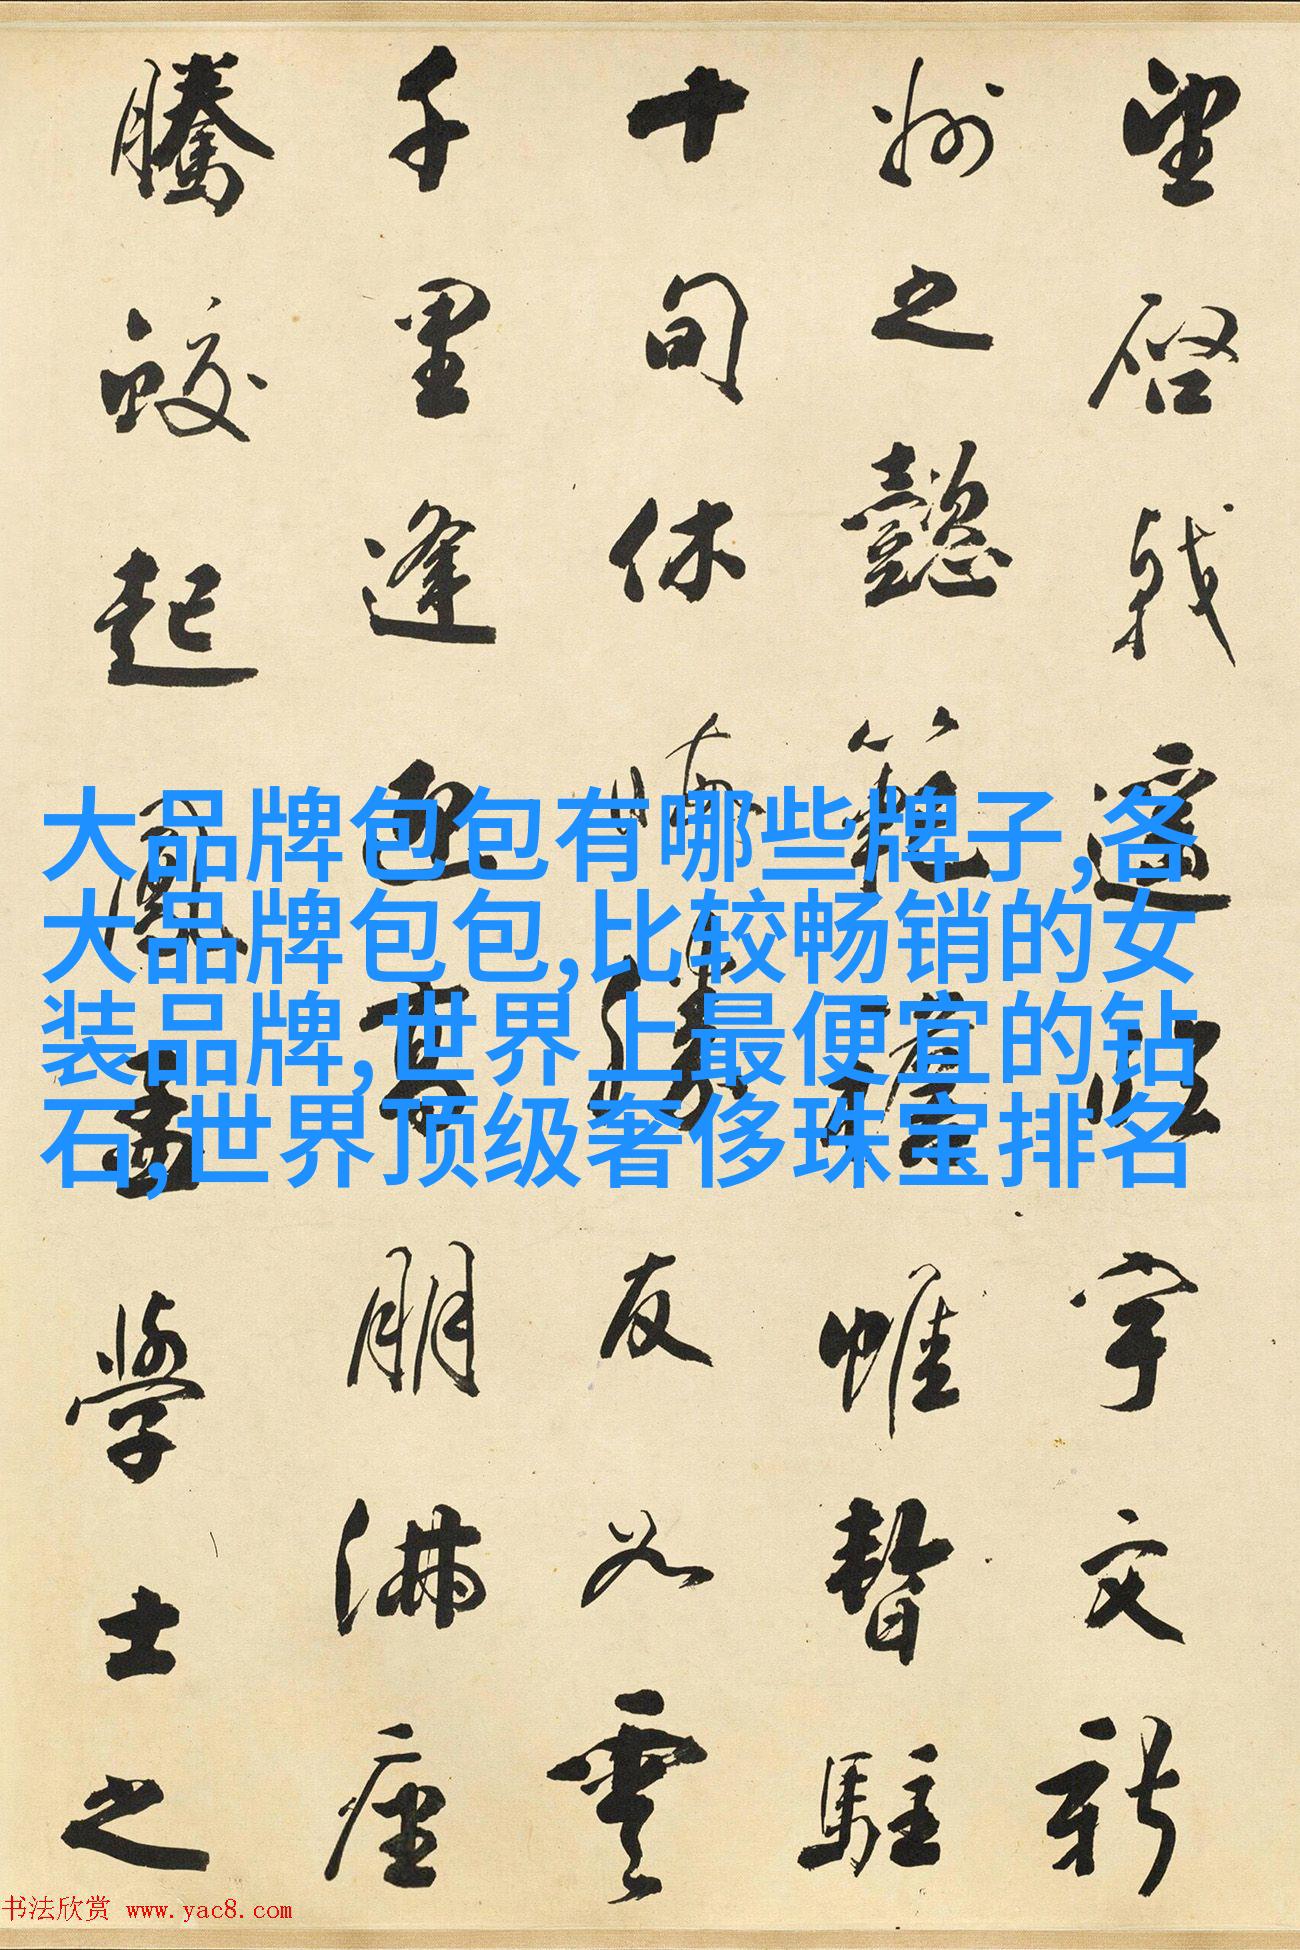 望啓戟遥臨宇文新
州之懿範襜帷暫駐
十旬休勝友如雲
千里逢迎高朋滿座
騰蛟起鳳孟學士之
大品牌包包有哪些牌子,各
大品牌包包,比较畅销的女
装品牌,世界上最便宜的钻
石,世界顶级奢侈珠宝排名
书法欣赏 www.yac8.com